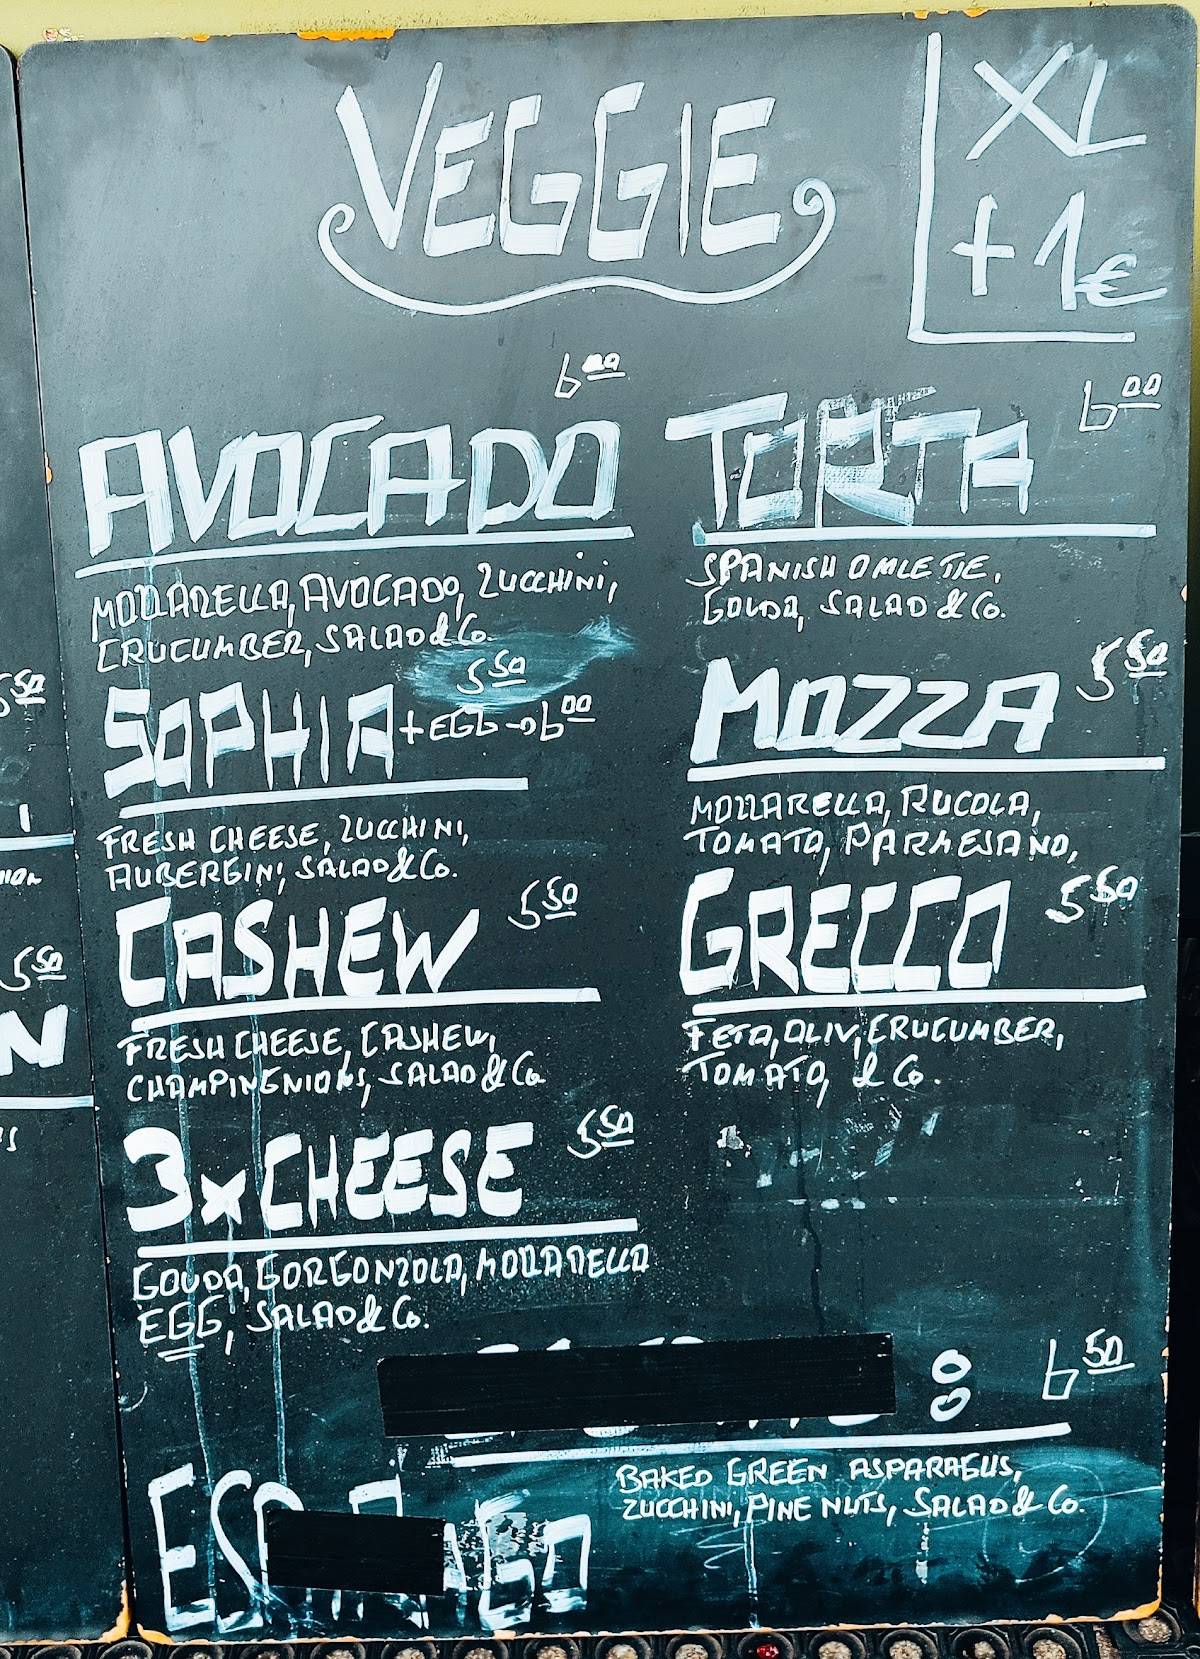 VEGGIE
XL
+1€
6.00
AVOCADO
MOZZARELLA, AVOCADO, ZUCCHINI,
CRUCUMBER, SALAD & Co.
5.50
SOPHIA +EGG → 6.00
FRESH CHEESE, ZUCCHINI,
AUBERGINI, SALAD & Co.
CASHEW 5.50
FRESH CHEESE, CASHEW,
CHAMPINGNIONS, SALAD & Co
3x CHEESE 5.50
GOUDA, GORGONZOLA, MOZZARELLA
EGG, SALAD & Co.
TORTA 6.00
SPANISH OMLETTE,
GOUDA, SALAD & Co.
MOZZA 5.50
MOZZARELLA, RUCOLA,
TOMATO, PARMESANO,
GRECCO 5.50
FETA, OLIV, CRUCUMBER,
TOMATO, & Co.
: 6.50
BAKED GREEN ASPARAGUS,
ZUCCHINI, PINE NUTS, SALAD & Co.
5.50
5.50
N